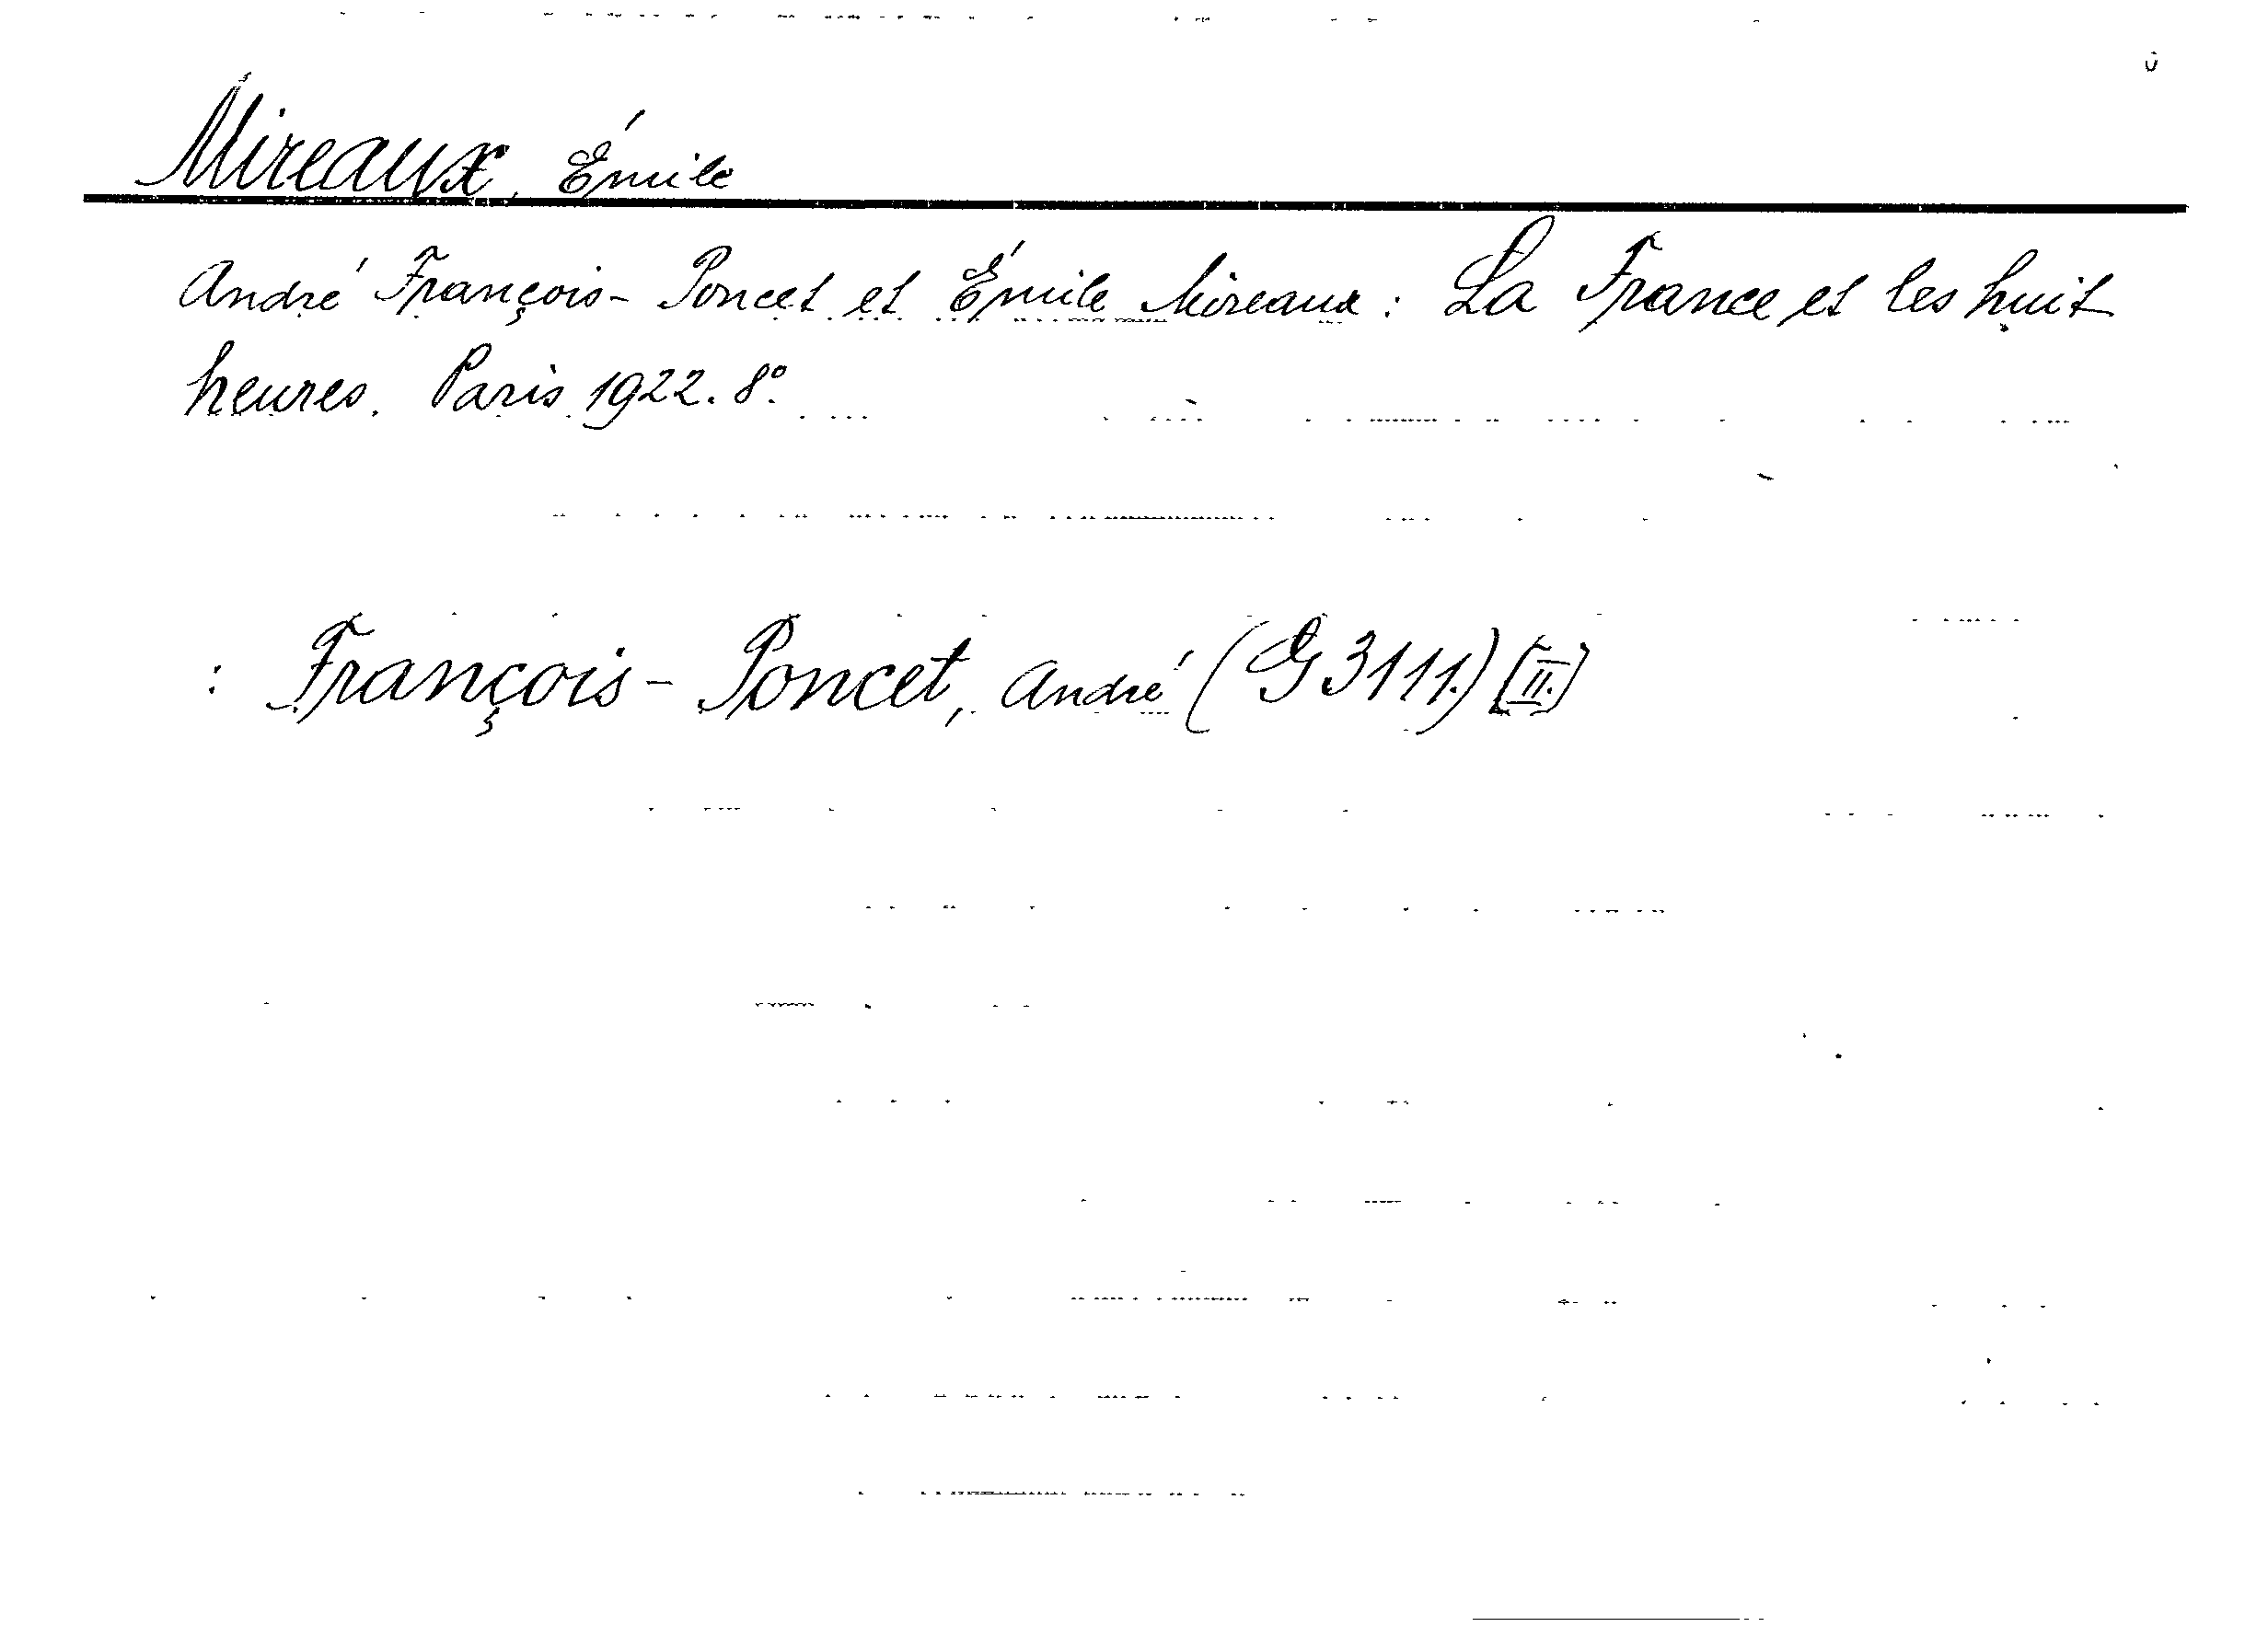 Mireaux, Émile
André François-Poncet et Émile Mireaux: La France et les huit
heures. Paris 1922. 8°.
: François-Poncet, André (G 3111.) [II.]